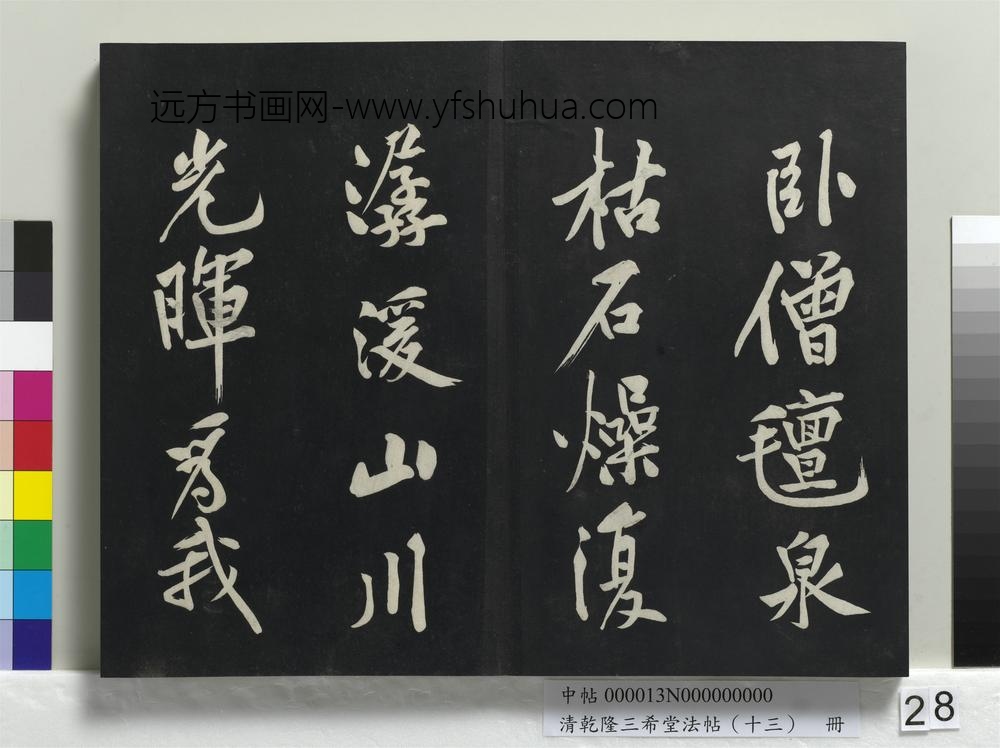 远方书画网-www.yfshuhua.com
卧僧氊泉
枯石燥復
潺湲山川
光暉為我
中帖 000013N000000000
清乾隆三希堂法帖（十三） 冊
28